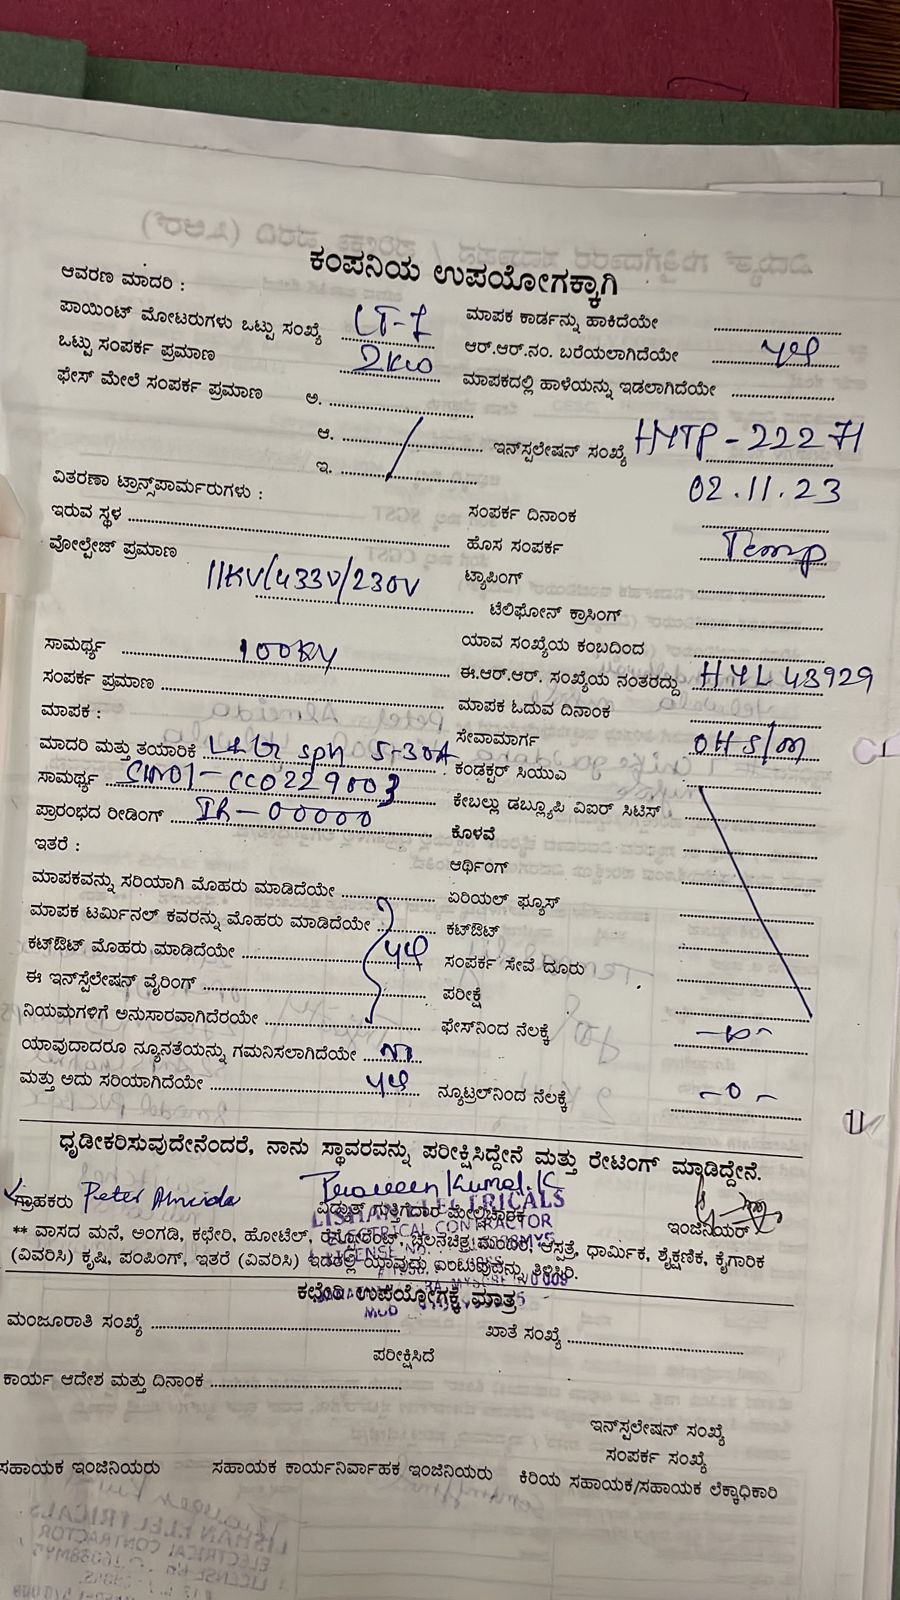 ಕಂಪನಿಯ ಉಪಯೋಗಕ್ಕಾಗಿ
ಆವರಣ ಮಾದರಿ :
ಪಾಯಿಂಟ್ ಮೋಟರುಗಳು ಒಟ್ಟು ಸಂಖ್ಯೆ LT-7
ಒಟ್ಟು ಸಂಪರ್ಕ ಪ್ರಮಾಣ 2KW
ಫೇಸ್ ಮೇಲೆ ಸಂಪರ್ಕ ಪ್ರಮಾಣ ಅ.
ಆ.
ಇ.
ವಿತರಣಾ ಟ್ರಾನ್ಸ್‌ಪಾರ್ಮರುಗಳು :
ಇರುವ ಸ್ಥಳ
ವೋಲ್ಟೇಜ್ ಪ್ರಮಾಣ 11KV/433V/230V
ಸಾಮರ್ಥ್ಯ 100KV
ಸಂಪರ್ಕ ಪ್ರಮಾಣ
ಮಾಪಕ :
ಮಾದರಿ ಮತ್ತು ತಯಾರಿಕೆ L&G sph 5-30A
ಸಾಮರ್ಥ್ಯ CC0229003
ಪ್ರಾರಂಭದ ರೀಡಿಂಗ್ IR-00000
ಇತರೆ :
ಮಾಪಕವನ್ನು ಸರಿಯಾಗಿ ಮೊಹರು ಮಾಡಿದೆಯೇ
ಮಾಪಕ ಟರ್ಮಿನಲ್ ಕವರನ್ನು ಮೊಹರು ಮಾಡಿದೆಯೇ
ಕಟ್‌ಔಟ್ ಮೊಹರು ಮಾಡಿದೆಯೇ yes
ಈ ಇನ್‌ಸ್ಟೆಲೇಷನ್ ವೈರಿಂಗ್
ನಿಯಮಗಳಿಗೆ ಅನುಸಾರವಾಗಿದೆರಯೇ
ಯಾವುದಾದರೂ ನ್ಯೂನತೆಯನ್ನು ಗಮನಿಸಲಾಗಿದೆಯೇ no
ಮತ್ತು ಅದು ಸರಿಯಾಗಿದೆಯೇ yes
ಮಾಪಕ ಕಾರ್ಡನ್ನು ಹಾಕಿದೆಯೇ
ಆರ್.ಆರ್.ನಂ. ಬರೆಯಲಾಗಿದೆಯೇ yes
ಮಾಪಕದಲ್ಲಿ ಹಾಳೆಯನ್ನು ಇಡಲಾಗಿದೆಯೇ
ಇನ್‌ಸ್ಟಲೇಷನ್ ಸಂಖ್ಯೆ HYTP-22271
ಸಂಪರ್ಕ ದಿನಾಂಕ 02.11.23
ಹೊಸ ಸಂಪರ್ಕ Temp
ಟ್ಯಾಪಿಂಗ್
ಟೆಲಿಫೋನ್ ಕ್ರಾಸಿಂಗ್
ಯಾವ ಸಂಖ್ಯೆಯ ಕಂಬದಿಂದ
ಈ.ಆರ್.ಆರ್. ಸಂಖ್ಯೆಯ ನಂತರದ್ದು HYL43929
ಮಾಪಕ ಓದುವ ದಿನಾಂಕ
ಸೇವಾಮಾರ್ಗ OHS/M
ಕಂಡಕ್ಟರ್ ಸಿಯುವಿ
ಕೇಬಲ್ಲು ಡಬ್ಲ್ಯೂಪಿ ವಿಐರ್ ಸಿಟಿಸ್
ಕೊಳವೆ
ಆರ್ಥಿಂಗ್
ಏರಿಯಲ್ ಫ್ಯೂಸ್
ಕಟ್‌ಔಟ್
ಸಂಪರ್ಕ ಸೇವೆ ದೂರು
ಪರೀಕ್ಷೆ
ಫೇಸ್‌ನಿಂದ ನೆಲಕ್ಕೆ
ನ್ಯೂಟ್ರಲ್‌ನಿಂದ ನೆಲಕ್ಕೆ -0-
ಧೃಡೀಕರಿಸುವುದೇನೆಂದರೆ, ನಾನು ಸ್ಥಾವರವನ್ನು ಪರೀಕ್ಷಿಸಿದ್ದೇನೆ ಮತ್ತು ರೇಟಿಂಗ್ ಮಾಡಿದ್ದೇನೆ.
ಗ್ರಾಹಕರು Peter Almeida Praveen Kumar.K
ವಿದ್ಯುತ್ ಗುತ್ತಿಗೆದಾರ ಮೇಲ್ವಿಚಾರಕ ಇಂಜಿನಿಯರ್
LISHAN ELECTRICALS
ELECTRICAL CONTRACTOR
** ವಾಸದ ಮನೆ, ಅಂಗಡಿ, ಕಛೇರಿ, ಹೋಟೆಲ್, ರೆಸ್ಟೋರೆಂಟ್, ಚಲನಚಿತ್ರ ಮಂದಿರ, ಆಸ್ಪತ್ರೆ, ಧಾರ್ಮಿಕ, ಶೈಕ್ಷಣಿಕ, ಕೈಗಾರಿಕ
(ವಿವರಿಸಿ) ಕೃಷಿ, ಪಂಪಿಂಗ್, ಇತರೆ (ವಿವರಿಸಿ) ಇವರಲ್ಲಿ ಯಾವುದು ಎಂಬುವುದನ್ನು ತಿಳಿಸಿರಿ.
ಕಛೇರಿ ಉಪಯೋಗಕ್ಕೆ ಮಾತ್ರ
ಮಂಜೂರಾತಿ ಸಂಖ್ಯೆ ಖಾತೆ ಸಂಖ್ಯೆ
ಪರೀಕ್ಷಿಸಿದೆ
ಕಾರ್ಯ ಆದೇಶ ಮತ್ತು ದಿನಾಂಕ
ಇನ್‌ಸ್ಟಲೇಷನ್ ಸಂಖ್ಯೆ
ಸಂಪರ್ಕ ಸಂಖ್ಯೆ
ಸಹಾಯಕ ಇಂಜಿನಿಯರು ಸಹಾಯಕ ಕಾರ್ಯನಿರ್ವಾಹಕ ಇಂಜಿನಿಯರು ಕಿರಿಯ ಸಹಾಯಕ/ಸಹಾಯಕ ಲೆಕ್ಕಾಧಿಕಾರಿ